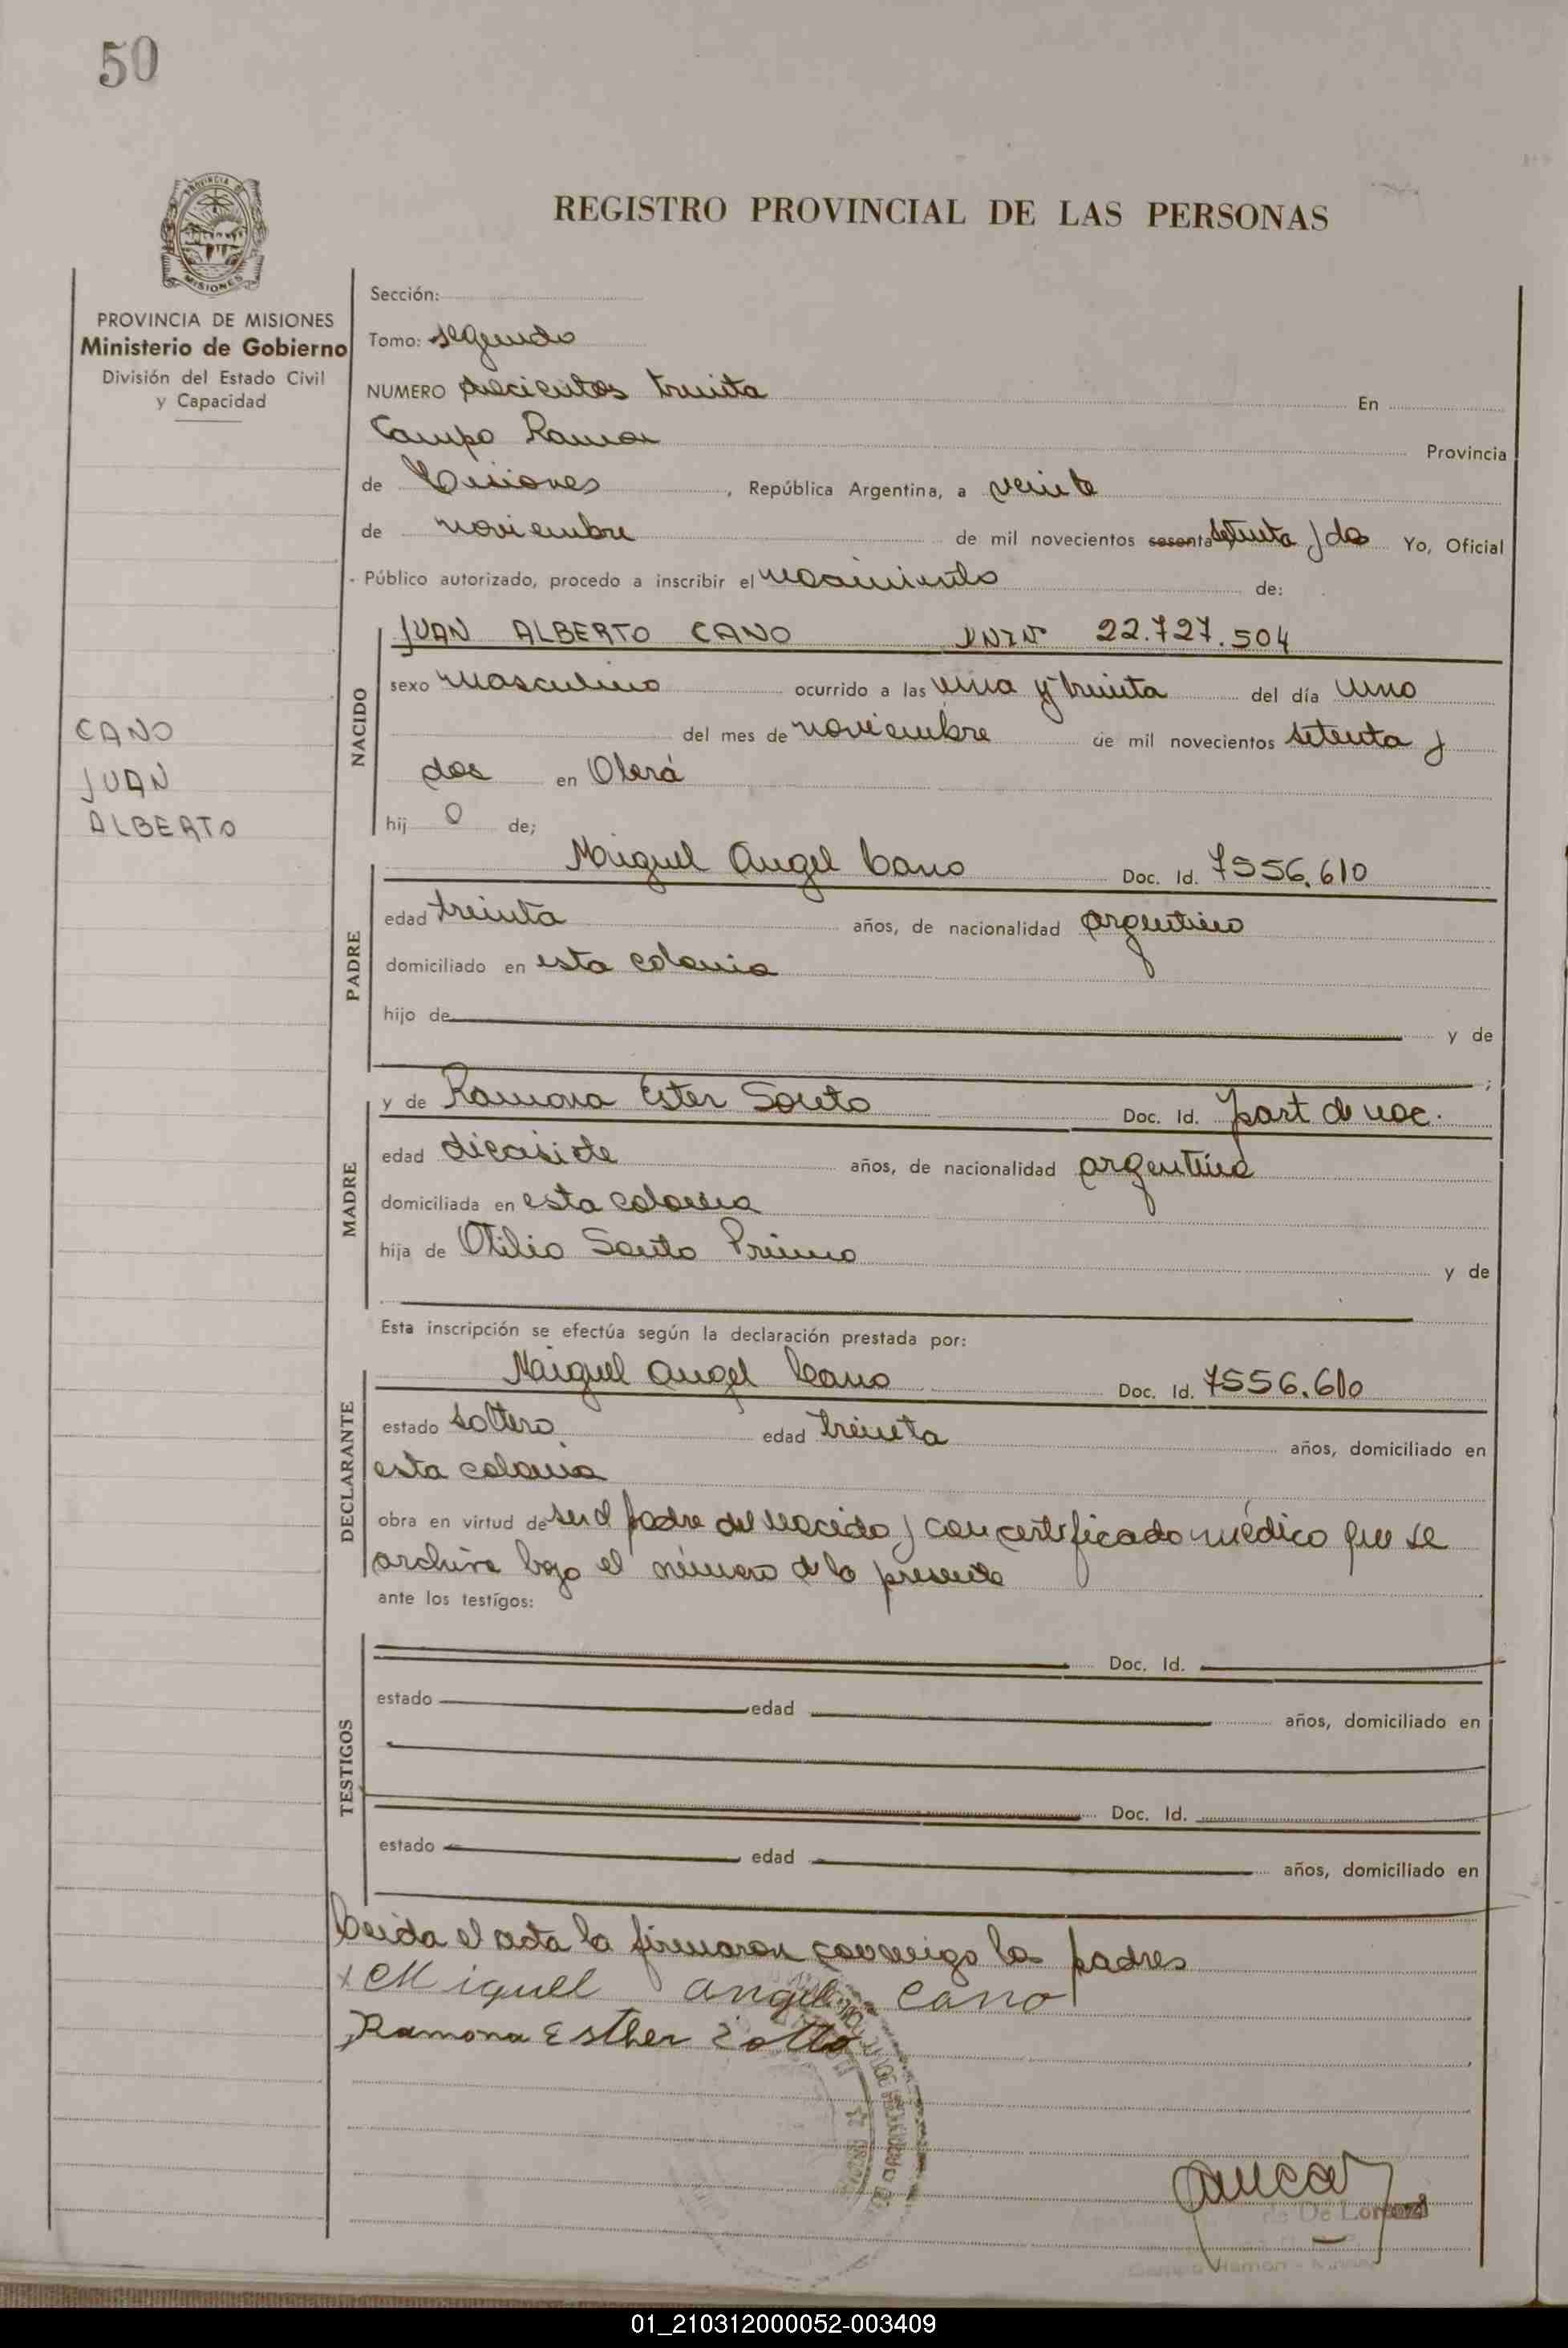 50
PROVINCIA DE
MISIONES
REGISTRO PROVINCIAL DE LAS PERSONAS
PROVINCIA DE MISIONES
Ministerio de Gobierno
División del Estado Civil
y Capacidad
CANO
JUAN
ALBERTO
Sección:
Tomo: segundo
NUMERO doscientos treinta En
Campo Ramon Provincia
de Misiones, República Argentina, a veinte
de noviembre de mil novecientos sesenta setenta y dos Yo, Oficial
Público autorizado, procedo a inscribir el nacimiento de:
NACIDO
JUAN ALBERTO CANO 22.727.504
sexo masculino ocurrido a las una y treinta del día uno
del mes de noviembre de mil novecientos setenta y
dos en Oberá
hij o de;
PADRE
Miguel Angel Cano Doc. Id. 7556.610
edad treinta años, de nacionalidad argentino
domiciliado en esta colonia
hijo de y de
;
MADRE
y de Ramona Ester Souto Doc. Id. part de nac.
edad diecisiete años, de nacionalidad argentina
domiciliada en esta colonia
hija de Otilio Souto Primo y de
Esta inscripción se efectúa según la declaración prestada por:
DECLARANTE
Miguel Angel Cano Doc. Id. 7556.610
estado soltero edad treinta años, domiciliado en
esta colonia
obra en virtud de ser el padre del nacido y con certificado médico que se
archiva bajo el número de la presente
ante los testigos:
TESTIGOS
Doc. Id.
estado edad años, domiciliado en
Doc. Id.
estado edad años, domiciliado en
Leida el acta la firmaron conmigo los padres
x Miguell angel Cano
Ramona Esther Zotto
de De Lorenzi
Campo Ramon
01_210312000052-003409